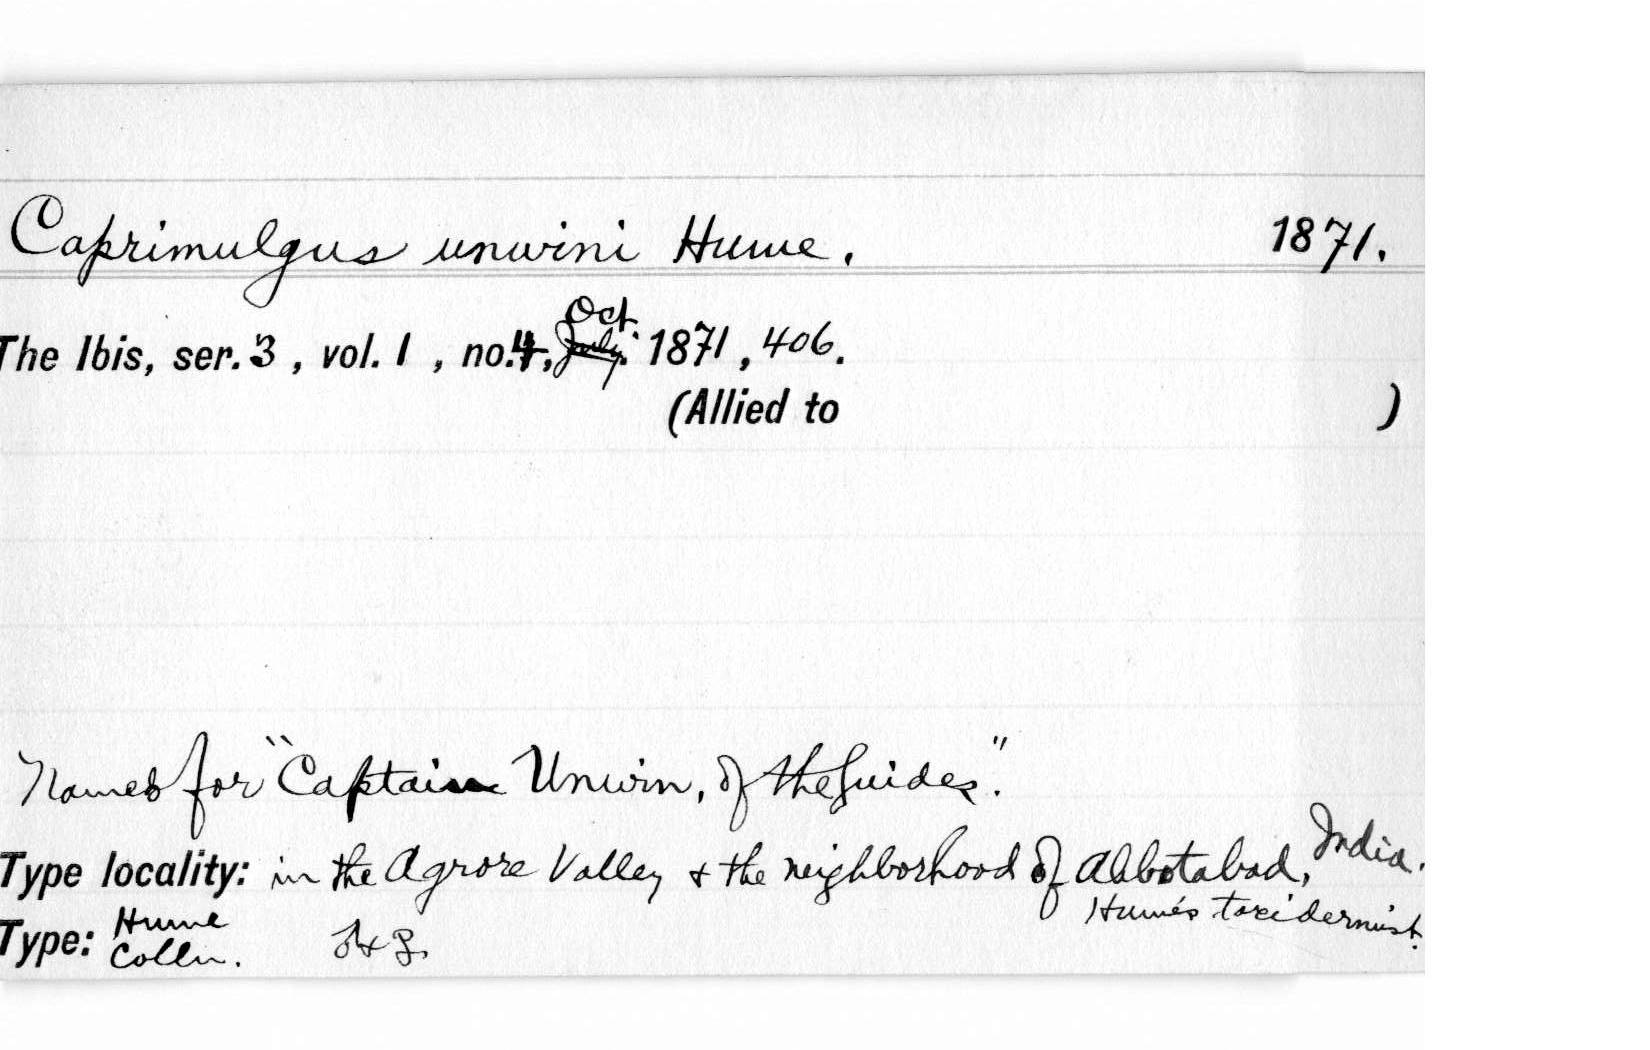 Caprimulgus unwini Hume. 1871.
Oct.
The Ibis, ser. 3, vol. 1, no. 4, July. 1871, 406.
(Allied to )
Named for "Captain Unwin, of the Guides."
Type locality: in the Agrore Valley & the neighborhood of Abbotabad, India.
Hume's taxidermist.
Type: Hume
Colln. ♂ & ♀.